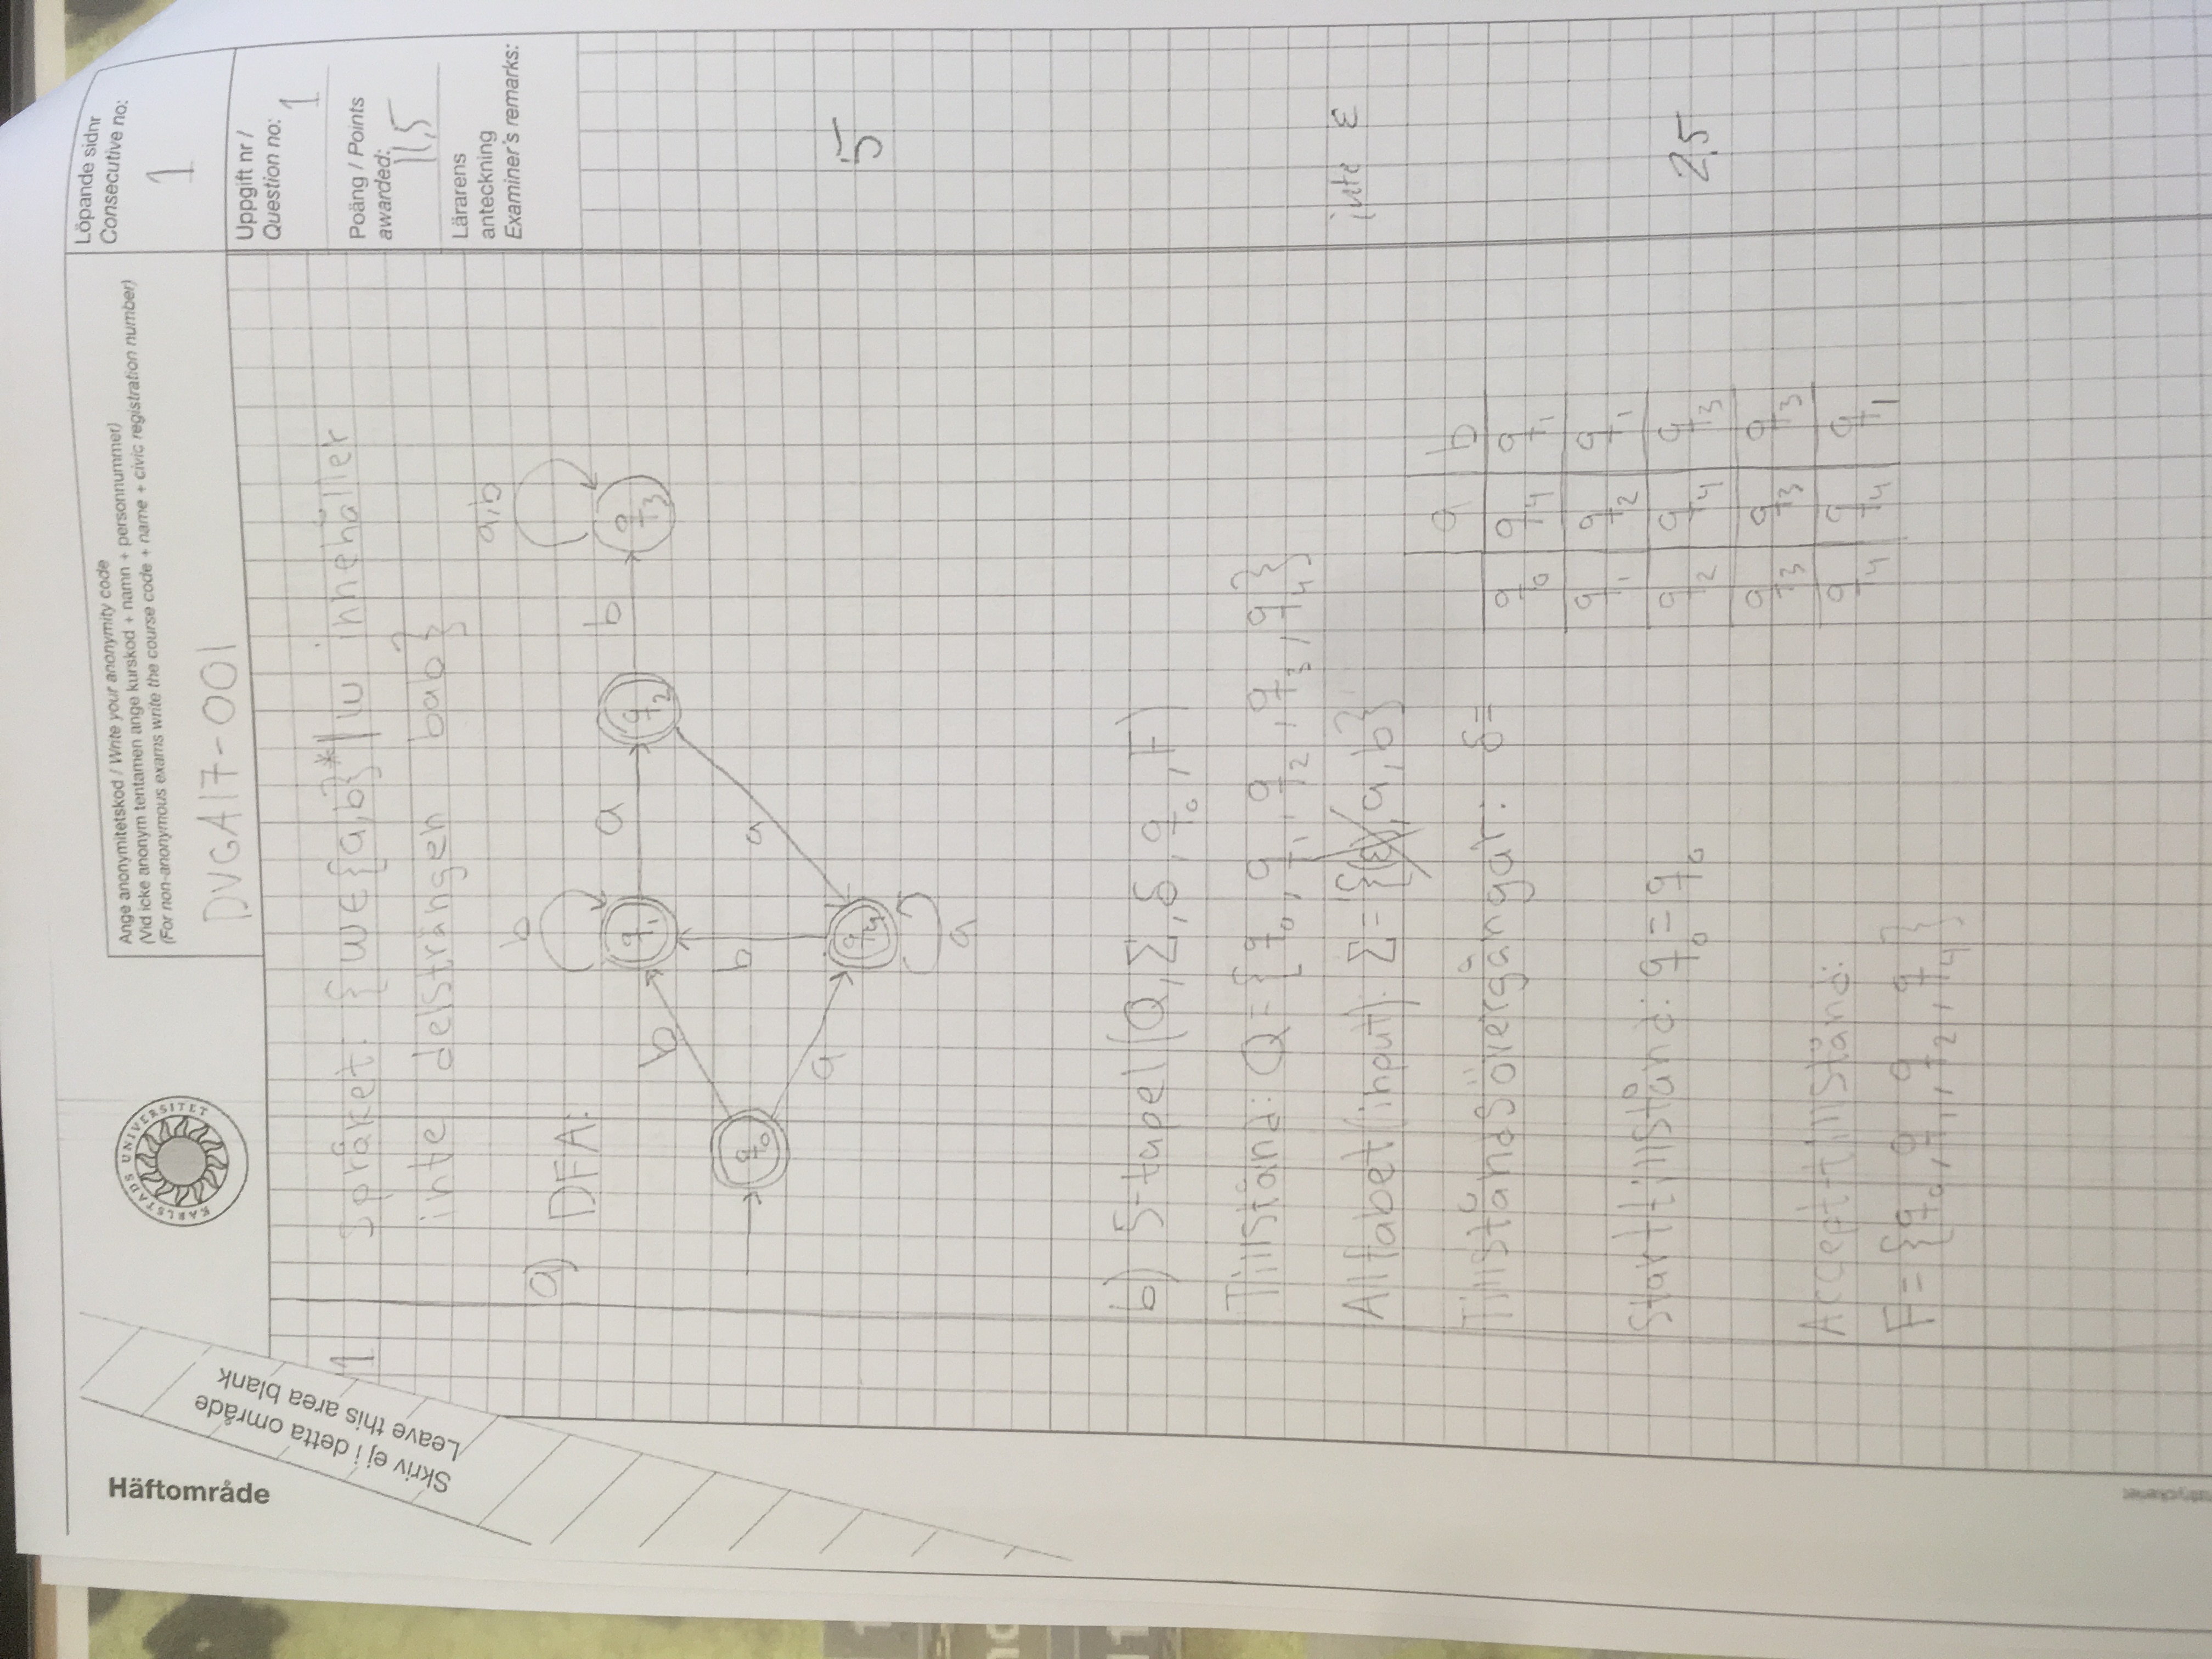 Häftområde
Skriv ej i detta område
Leave this area blank
KARLSTADS UNIVERSITET
Ange anonymitetskod / Write your anonymity code
(Vid icke anonym tentamen ange kurskod + namn + personnummer)
(For non-anonymous exams write the course code + name + civic registration number)
DVGA17-001
Löpande sidnr
Consecutive no:
1
Uppgift nr /
Question no:
1
Poäng / Points
awarded:
11,5
Lärarens
anteckning
Examiner's remarks:
1 Språket: {w∈{a,b}*|w innehåller
inte delsträngen bab}
a) DFA:
b
a,b
q1 a q2 b q3
b
q0
b
a
a
q4
a
5
b) 5-tupel(Q,Σ,δ,q0,F)
Tillstånd: Q={q0,q1,q2,q3,q4}
Alfabet(input): Σ={(ε),a,b}
inte ε
Tillståndsövergångar: δ=
a b
q0 q4 q1
q1 q2 q1
q2 q4 q3
q3 q3 q3
q4 q4 q1
Starttillstånd: q0=q0
2,5
Accept-tillstånd:
F={q0,q1,q2,q4}